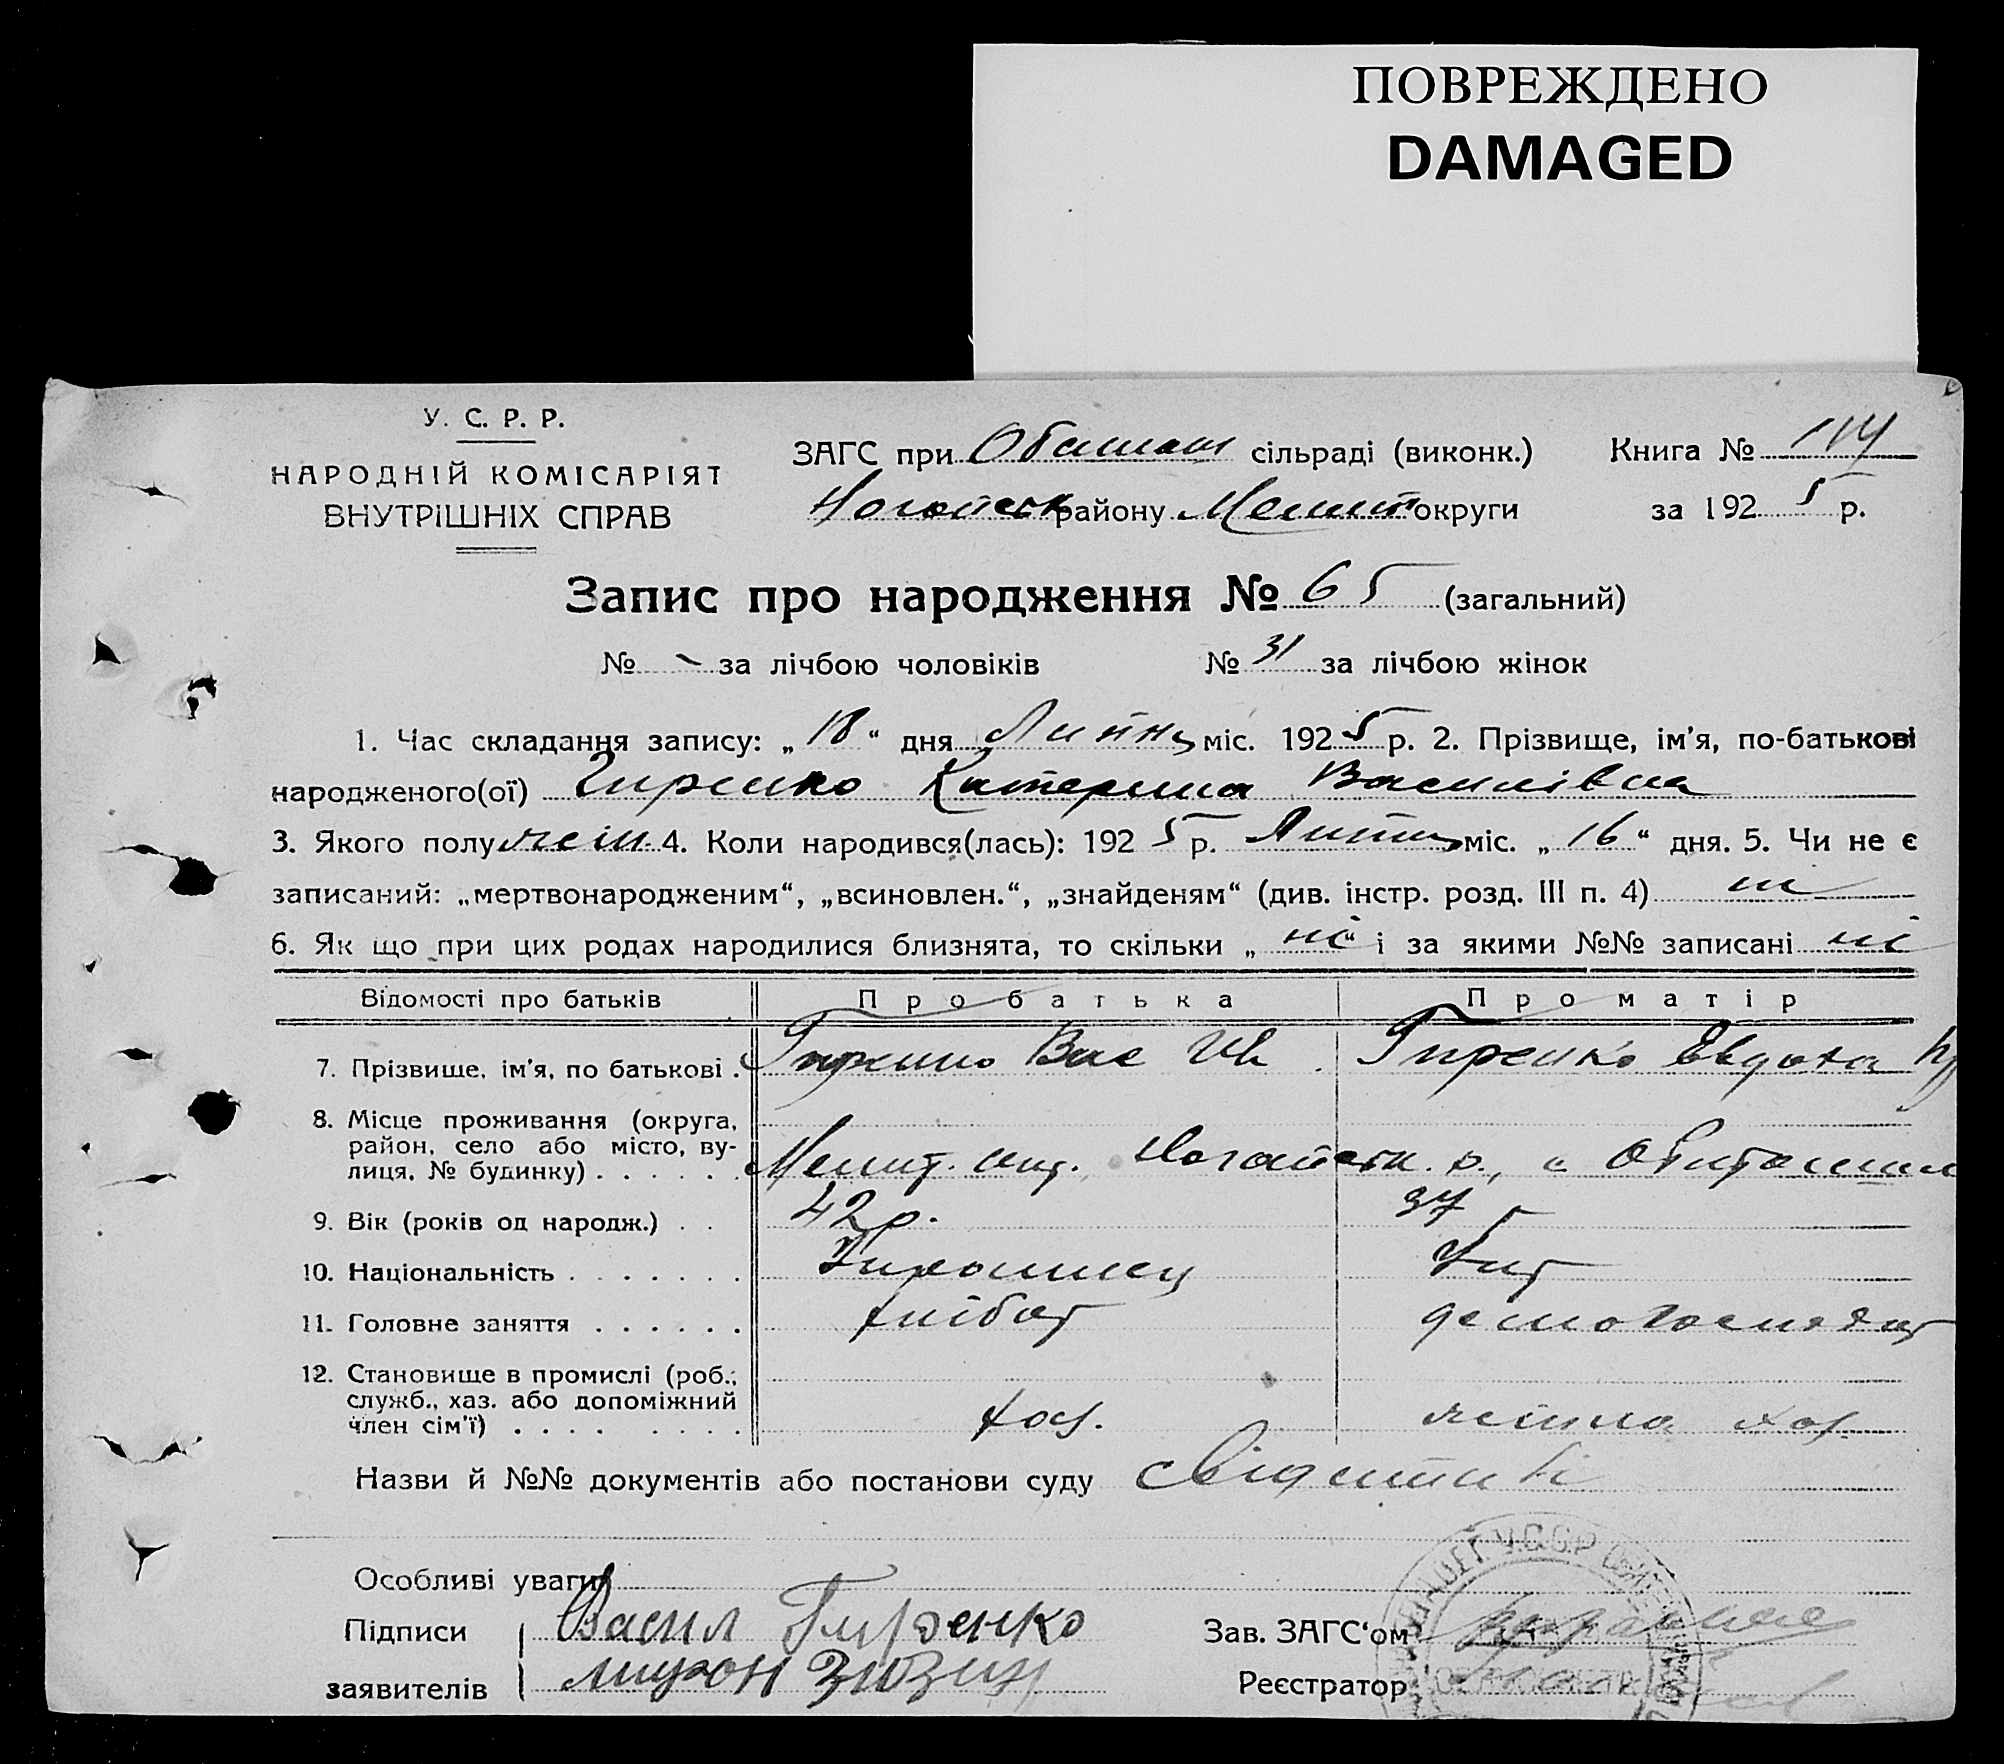 ПОВРЕЖДЕНО
DAMAGED
У. С. Р. Р.
НАРОДНІЙ КОМІСАРІЯТ
ВНУТРІШНІХ СПРАВ
ЗАГС при сільраді (виконк.) Книга № 114
Ногайськ району Мелит округи за 1925 р.
Запис про народження № 65 (загальний)
№ - за лічбою чоловіків № 31 за лічбою жінок
1. Час складання запису: „18“ дня Липня міс. 1925 р. 2. Прізвище, ім'я, по-батькові
народженого(ої) Гиренко Катерина Василівна
3. Якого полу жін. 4. Коли народився(лась): 1925 р. Липня міс. „16“ дня. 5. Чи не є
записаний: „мертвонародженим“, „всиновлен.“, „знайденям“ (див. інстр. розд. III п. 4) ні
6. Як що при цих родах народилися близнята, то скільки „ні“ і за якими №№ записані ні
Відомості про батьків Про батька Про матір
7. Прізвище, ім'я, по батькові . Гиренко Вас Ів Гиренко Евдоха
8. Місце проживання (округа,
район, село або місто, ву-
лиця, № будинку) . . . . . . Мелит. окр. Ногайськ. р.,
9. Вік (років од народж.) . . 42 р. 37
10. Національність . . . . . . . Украинец Укр
11. Головне заняття . . . . . . хлібор домогосподар
12. Становище в промислі (роб.,
служб., хаз. або допоміжний
член сім'ї) . . . . . . . . хаз. жінка хаз.
Назви й №№ документів або постанови суду
Особливі уваги
Підписи Васил Гиренко Зав. ЗАГС'ом
заявителів Мирон Реєстратор